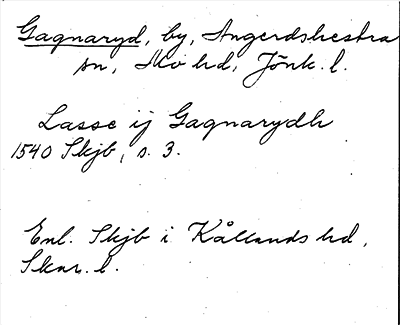 Gagnaryd, by, Angerdshestra
sn, Mo hd, Jönk. l.
Lasse ij Gagnarydh
1540 Skjb, s. 3.
Enl. Skjb i Kållands hd,
Skar. l.